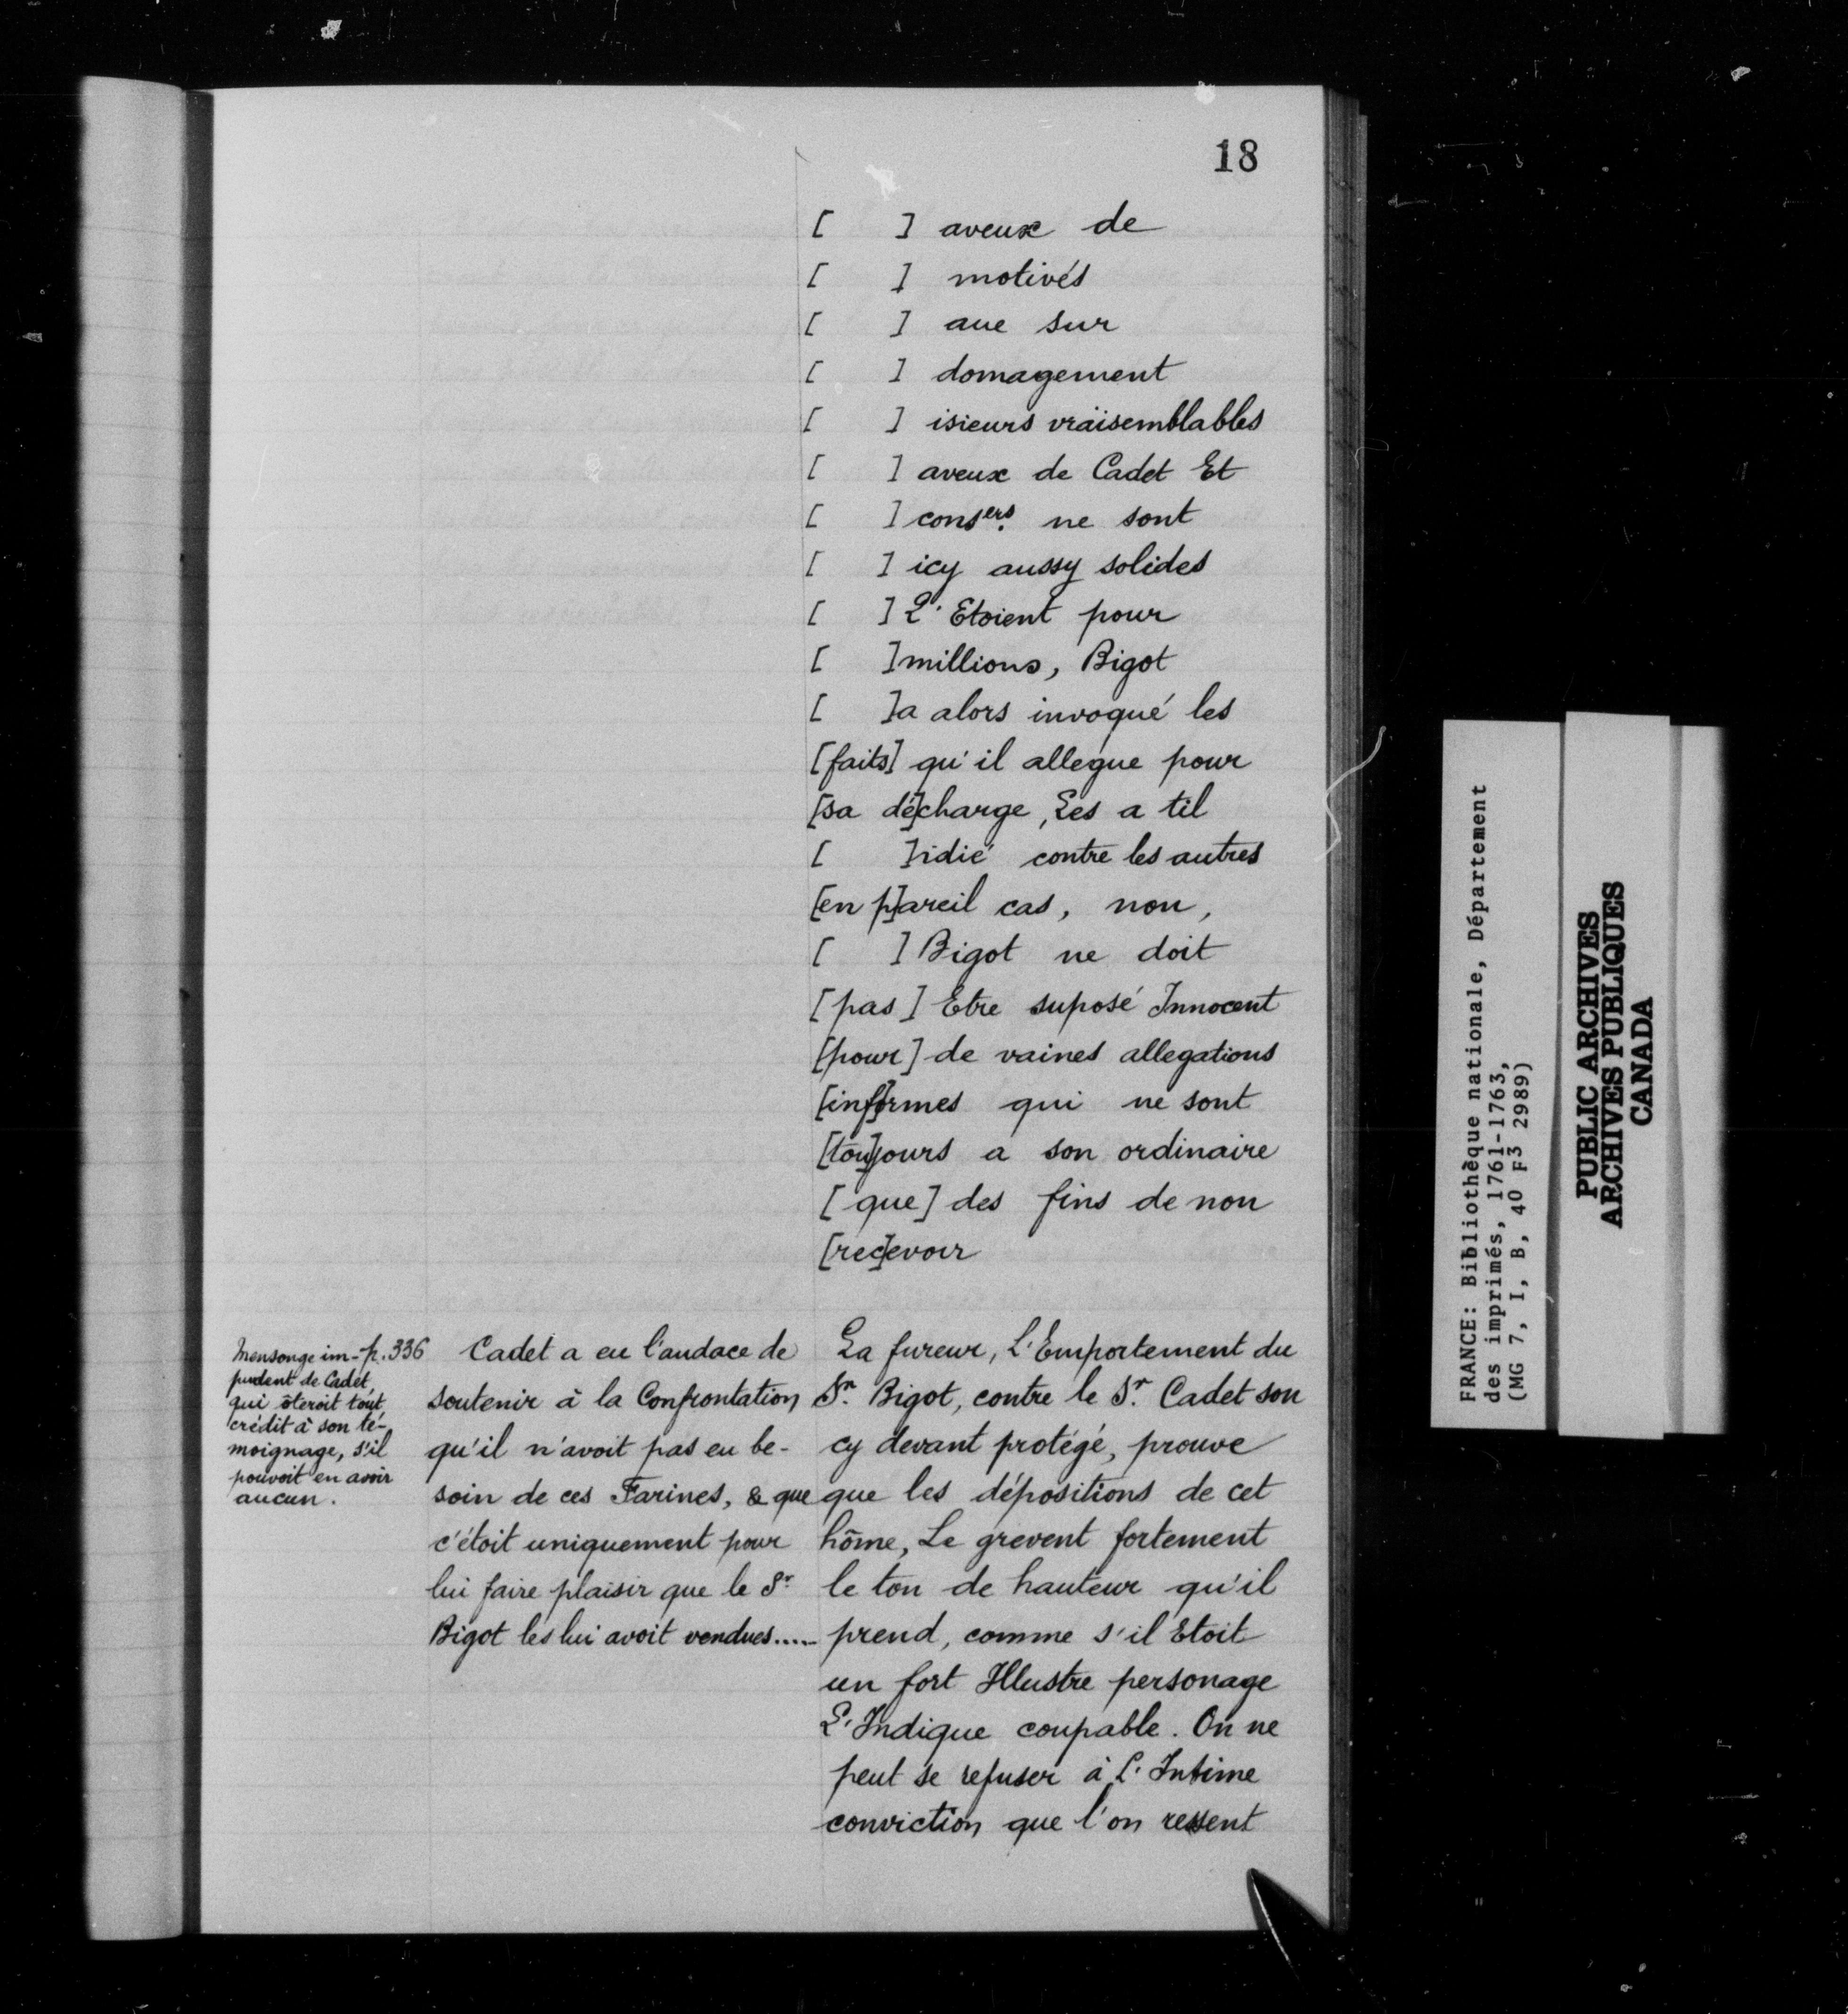 18
[ ] aveux de
[ ] motivés
[ ] aue sur
[ ] domagement
[ ] isieurs vraïsemblables
[ ] aveux de Cadet Et
[ ] consers. ne sont
[ ] icy aussy solides
[ ] L'Etoient pour
[ ] millions, Bigot
[ ]a alors invoqué les
[faits] qu'il allegue pour
[sa dé]charge, Les a til
[ ]idié contre les autres
[en p]areil cas, non,
[ ] Bigot ne doit
[pas] Etre suposé Innocent
[pour] de vaines allegations
[inf]ormes qui ne sont
[tou]jours a son ordinaire
[que] des fins de non
[rec]evoir
Mensonge im-
pudent de Cadet,
qui ôteroit tout
crédit à son té-
moignage, s'il
pouvoit en avoir
aucun.
p. 336
Cadet a eu l'audace de
soutenir à la Confrontation
qu'il n'avoit pas eu be-
soin de ces Farines, & que
c'étoit uniquement pour
lui faire plaisir que le Sr.
Bigot les lui avoit vendues.....
La fureur, L'Emportement du
Sr. Bigot, contre le Sr. Cadet son
cy devant protégé, prouve
que les dépositions de cet
hôme, Le grevent fortement
le ton de hauteur qu'il
prend, comme s'il Etoit
un fort Illustre personage
L'Indique coupable. On ne
peut se refuser à L'Intime
conviction que l'on ressent
FRANCE: Bibliothèque nationale, Département
des imprimés, 1761-1763,
(MG 7, I, B, 40 F3 2989)
PUBLIC ARCHIVES
ARCHIVES PUBLIQUES
CANADA